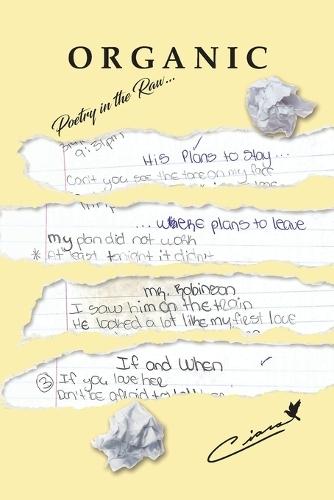 ORGANIC
Poetry in the Raw...
His Plans to Stay...
Can't you see the
on my face
...where plans to leave
my plan did not work
* At least tonight it didn't
Mr. Robinson
I saw him on the train
He looked a lot like my first love
If and When
3 If you love her
Don't be afraid to
Ciara